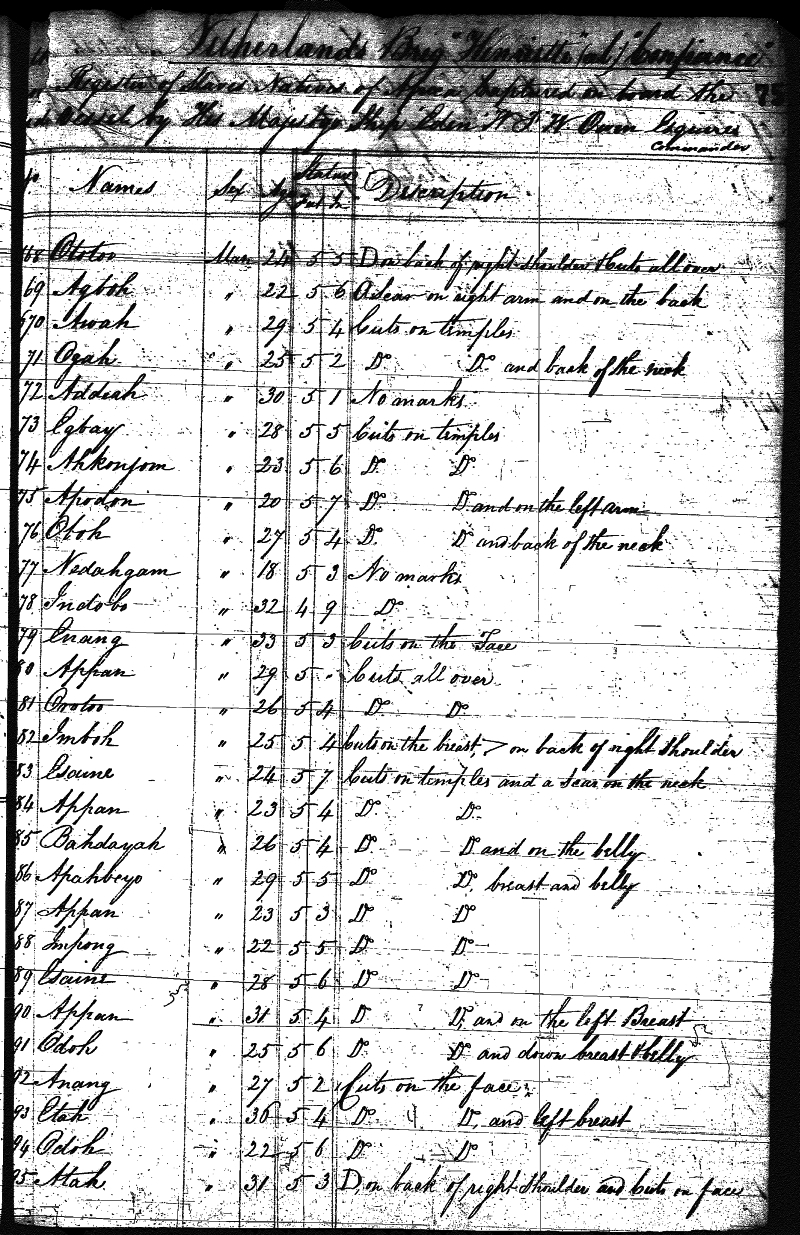 Netherlands Brig "Henriette (al,) Confiance"
Register of Slaves Natives of Africa Captured on board the 75
Vessel by His Majestys Ship Eden W F W Owen Esquire
Commander
No Names Sex Age Stature Description
Fut In
68 Ototoo Man 24 5 5 D on back of right Shoulder & Cuts all over
69 Agboh " 22 5 6 A Scar on right arm and on the back
670 Awah " 29 5 4 Cuts on temples
71 Ogah " 25 5 2 Do Do and back of the neck
72 Addiah " 30 5 1 No marks
73 Egbay " 28 5 5 Cuts on temples
74 Ahkonjom " 23 5 6 Do Do
75 Apodon " 20 5 7 Do Do and on the left arm
76 Otoh " 27 5 4 Do Do and back of the neck
77 Nedahgam " 18 5 3 No marks
78 Indobo " 32 4 9 Do
79 Enang " 33 5 3 Cuts on the Face
80 Appan " 29 5 - Cuts all over
81 Orotoo " 26 5 4 Do Do
82 Imboh " 25 5 4 Cuts on the breast, > on back of right Shoulder
83 Esaine " 24 5 7 Cuts on temples and a Scar on the neck
84 Appan " 23 5 4 Do Do
85 Bahdayah " 26 5 4 Do Do and on the belly
86 Apahbeyo " 29 5 5 Do Do, breast and belly
87 Appan " 23 5 3 Do Do
88 Impong " 22 5 5 Do Do
89 Esaine " 28 5 6 Do Do
90 Appan " 31 5 4 Do Do, and on the left Breast
91 Odoh " 25 5 6 Do Do and down breast & belly
92 Anang " 27 5 2 Cuts on the face
93 Etah " 36 5 4 Do Do, and left breast
94 Odoh " 22 5 6 Do Do
95 Atah " 31 5 3 D, on back of right Shoulder and Cuts on face